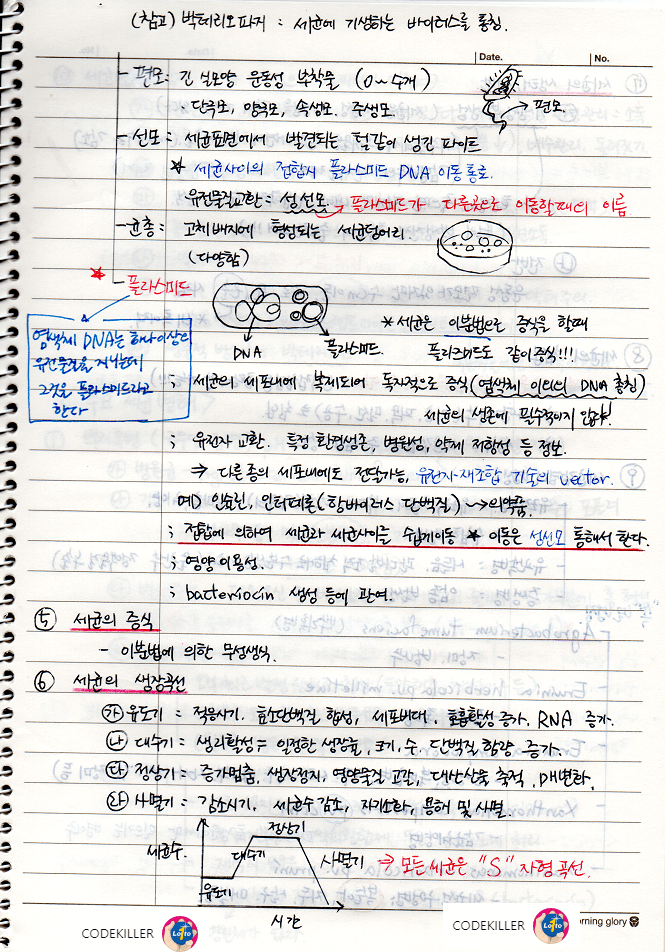 (참고) 박테리오파지 : 세균에 기생하는 바이러스를 통칭.
Date. No.
- 편모 : 긴 실모양 운동성 부착물 (0~수개)
단극모, 양극모, 속생모, 주생모.
→ 편모.
- 선모 : 세균표면에서 발견되는 털같이 생긴 파이트
* 세균사이의 접합시 플라스미드 DNA 이동통로.
유전물질교환 : 성선모 → 플라스미드가 다른곳으로 이동할때의 이름
- 균총 : 고체배지에 형성되는 세균덩어리.
(다양함)
* - 플라스미드
염색체 DNA는 하나이상의
유전물질을 지니는데
그것을 플라스미드라고
한다
DNA
플라스미드.
* 세균은 이분법으로 증식을 할때
플라즈매드도 같이증식!!!
; 세균의 세포내에 복제되어 독자적으로 증식 (염색체 이외의 DNA 총칭)
세균의 생존에 필수적이지 않다!
; 유전자 교환. 특정 환경생존, 병원성, 약제 저항성 등 정보.
⇒ 다른종의 세포내에도 전달가능, 유전자재조합 기술의 vector.
예) 인슐린, 인터페론(항바이러스 단백질) → 의약품.
; 접합에 의하여 세균과 세균사이를 쉽게이동 * 이동은 성선모 통해서 한다.
; 영양 이용성.
; bacteriocin 생성 등에 관여.
⑤ 세균의 증식
- 이분법에 의한 무성생식.
⑥ 세균의 생장곡선
㉮ 유도기 : 적응시기. 효소단백질 합성, 세포비대. 호흡활성 증가. RNA 증가.
㉯ 대수기 : 생리활성 일정한 생장률, 크기, 수, 단백질 함량 증가.
㉰ 정상기 : 증가멈춤, 생장정지, 영양물질 고갈, 대사산물 축적, pH변화.
㉱ 사멸기 : 감소시기, 세균수 감소, 자기소화, 용해 및 사멸.
세균수.
유도기
대수기
정상기
사멸기
시간
⇒ 모든 세균은 "S" 자형 곡선.
CODEKILLER Lotto
CODEKILLER Lotto
rning glory